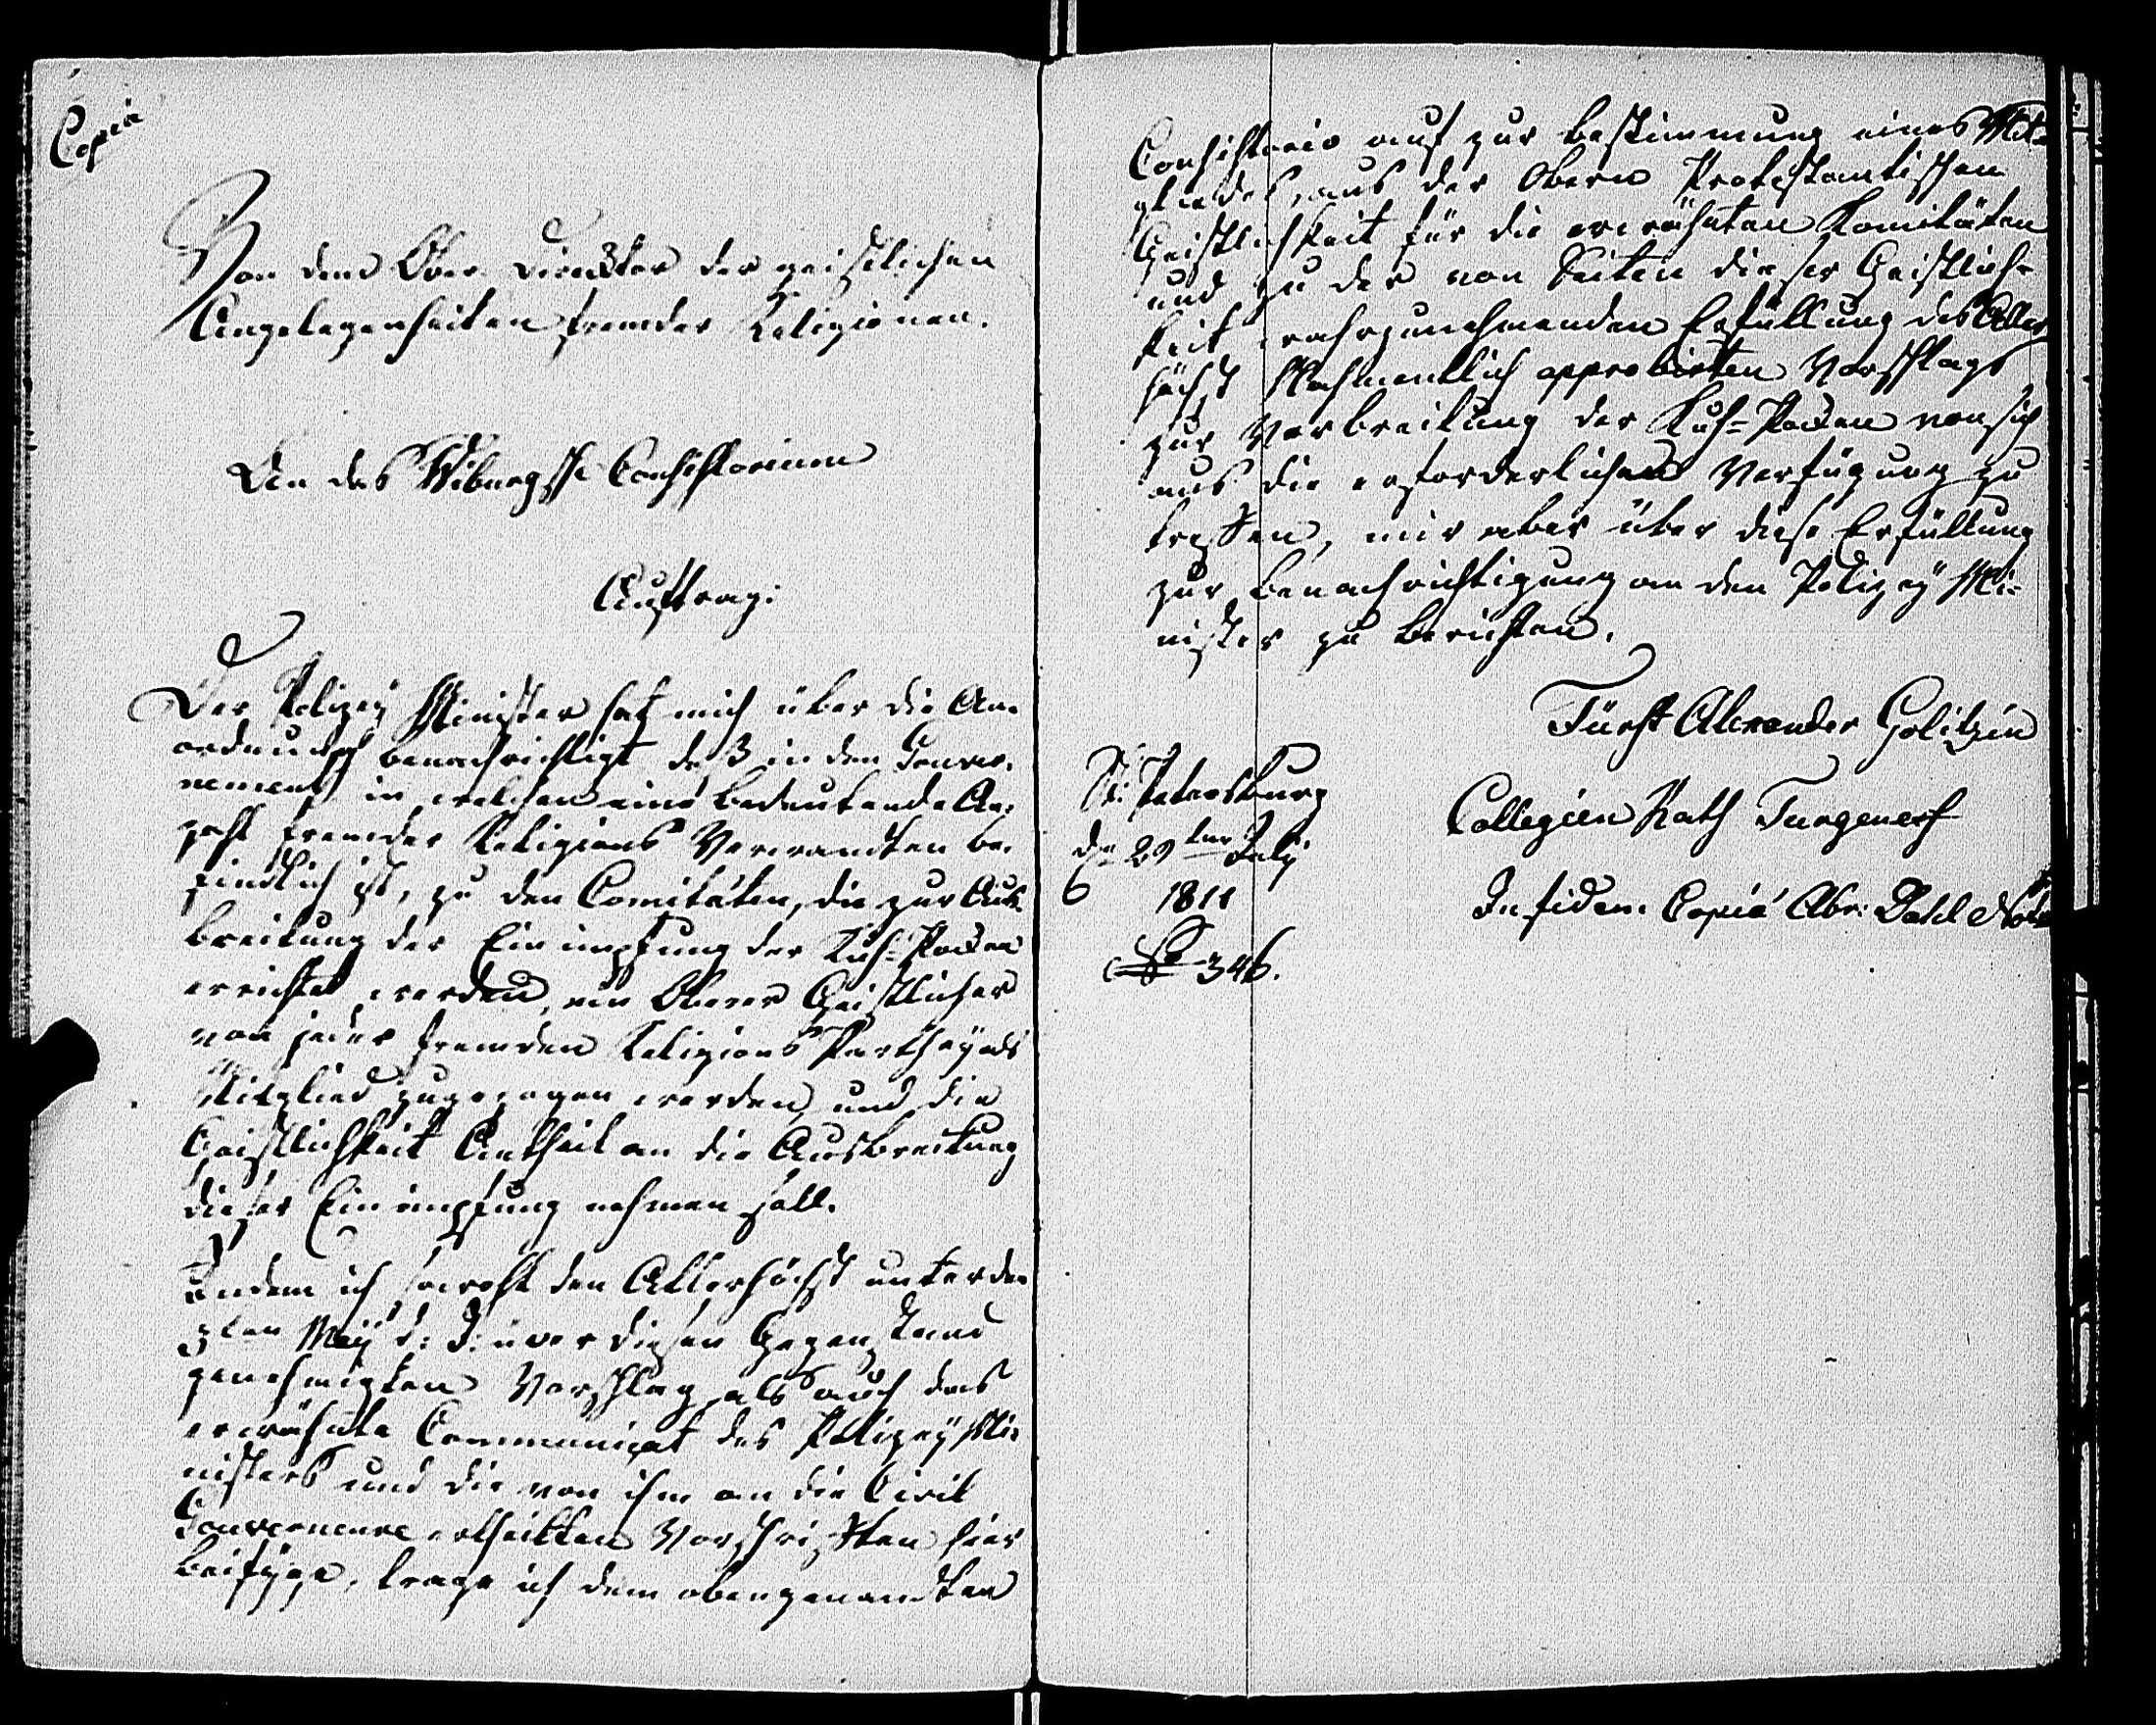 Copia
Von dem Ober Director der geistlichen
Angelegenheiten fremder Religionen.
An das Wiburgsche Consistorium
Auftrag:
Der Polizey Minister hat mich über die An-
ordnung benachrichtigt daß in den Gouver-
nements in welchen eine bedeutende An-
zahl fremder Religions Verwandten be-
findlich ist, zu den Comitäten, die zur Aus-
breitung der Einimpfung der Kuh-Pocken
errichtet werden, ein Oberer Geistlicher
von jeder fremden Religions Parthey als
Mitglied zugezogen werden, und die
Geistlichkeit Antheil an die Ausbreitung
dieser Einimpfung nehmen soll.
Indem ich sowohl den Allerhöchst unter den
3ten May d: J: über diesen Gegenstand
genehmigten Vorschlag, als auch das
erwähnte Communicat des Polizey Mi-
nisters und die von ihm an die Civil
Gouverneure ertheilten Vorschriften hier
beifüge, trage ich dem obengenandten
Consistorio auf zur Bestimmung eines Mit-
gliedes, aus der Obern Protestantischen
Geistlichkeit für die erwähnten Komitäten
und zu der von Seiten dieser Geistlich-
keit wahrzunehmenden Erfüllung des Aller-
höchst Nahmentlich approbirten Vorschlags
zur Verbreitung der Kuh-Pocken von sich
aus die erforderlichen Verfügung zu
treffen, mir aber über diese Erfüllung
zur Benachrichtigung an den Polizey Mi-
nister zu berichten.
Fürst Alexander Golitzin
St: Petersburg
Collegien Rath Turgeneff
d. 29ten July
1811
In fidem Copiá Abr: Dahl Not:
No 346.